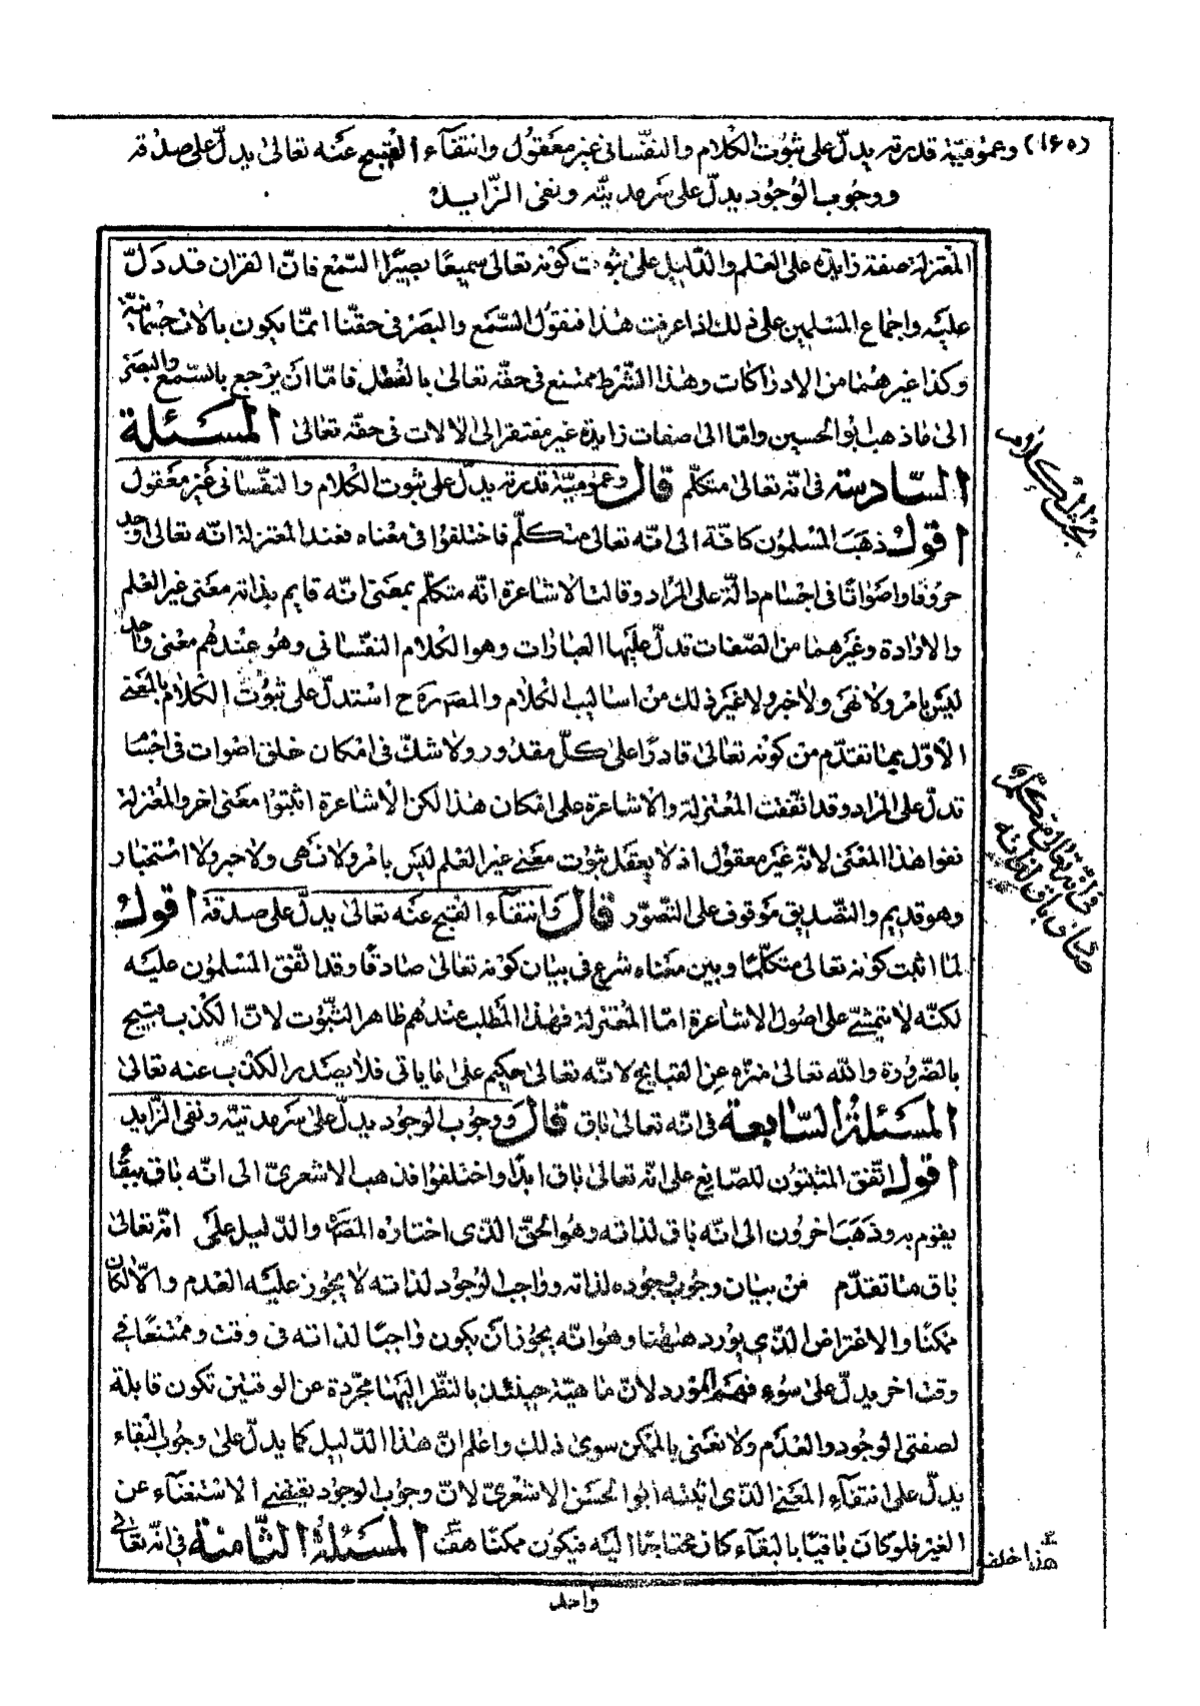 (١٦٥) وعموميّة قدرته يدلّ على ثبوت الكلام والنفساني غير معقول وانتفآء القبيح عنه تعالى يدلّ على صدقه
ووجوب الوجود يدلّ على سرمديّته ونفى الزّايد
المعتزلة صفة زايدة على العلم والدّليل على ثبوت كونه تعالى سميعًا بصيرًا السّمع فانّ القران قد دلّ
عليه واجماع المسلمين على ذلك اذا عرفت هذا فنقول السّمع والبصر فى حقّنا انّما يكون بالات جسمانيّة
وكذا غيرهما من الادراكات وهذا الشّرط ممتنع فى حقّه تعالى بالعقل فامّا ان يرجع بالسّمع والبصر
الى ما ذهب ابو الحسين وامّا الى صفات زايدة غير مفتقر الى الالات فى حقّه تعالى المسئلة
السّادسة فى انّه تعالى متكلّم قال وعموميّة قدرته يدلّ على ثبوت الكلام والنفساني غير معقول
اقول ذهب المسلمون كافّة الى انّه تعالى متكلّم فاختلفوا فى معناه فعند المعتزلة انّه تعالى اوجد
حروفًا واصواتًا فى اجسام دالّة على المراد وقالت الاشاعرة انّه متكلّم بمعنى انّه قايم بذاته معنى غير العلم
والارادة وغيرهما من الصّفات تدلّ عليها العبارات وهو الكلام النفساني وهو عندهم معنى واحد
ليس بامر ولا نهى ولا خبر ولا غير ذلك من اساليب الكلام والمصره ح استدلّ على ثبوت الكلام بالمعنى
الاوّل بما تقدّم من كونه تعالى قادرًا على كلّ مقدور ولا شكّ فى امكان خلق اصوات فى اجسا
تدلّ على المراد وقد اتّفقت المعتزلة والاشاعرة على امكان هذا لكن الاشاعرة اثبتوا معنى اخر والمعتزلة
نفوا هذا المعنى لانّه غير معقول اذ لا يعقل ثبوت معنى غير العلم ليس بامر ولا نهى ولا خبر ولا استخبار
وهو قديم والتّصديق موقوف على التّصوّر قال وانتفآء القبيح عنه تعالى يدلّ على صدقه اقول
لمّا اثبت كونه تعالى متكلّمًا وبيّن معناه شرع فى بيان كونه تعالى صادقًا وقد اتّفق المسلمون عليه
لكنّه لا يتمشّى على اصول الاشاعرة امّا المعتزلة فهذا المطلب عندهم ظاهر الثّبوت لانّ الكذب قبيح
بالضّرورة والله تعالى منزّه عن القبايح لانّه تعالى حكيم على ما ياتى فلا يصدر الكذب عنه تعالى
المسئلة السّابعة فى انّه تعالى باق قال ووجوب الوجود يدلّ على سرمديّته ونفى الزّايد
اقول اتّفق المثبتون للصّانع على انّه تعالى باق ابدًا واختلفوا فذهب الاشعرىّ الى انّه باق ببقآء
يقوم به وذهب اخرون الى انّه باق لذاته وهو الحقّ الّذى اختاره المصره والدّليل على انّه تعالى
باق ما تقدّم من بيان وجوب وجوده لذاته وواجب الوجود لذاته لا يجوز عليه العدم والّا لكان
ممكنًا والاعتراض الّذى يورد هٰهنا وهو انّه يجوز ان يكون واجبًا لذاته فى وقت وممتنعًا فى
وقت اخر يدلّ على سوء فهم المورد لانّ ماهيّة حينئذ بالنّظر اليها مجرّدة عن الوقتين تكون قابلة
لصفتى الوجود والعدم ولا نعنى بالممكن سوى ذلك واعلم انّ هذا الدّليل كما يدلّ على وجوب البقاء
يدلّ على انتفآء المعنى الّذى اثبته ابو الحسن الاشعرىّ لانّ وجوب الوجود يقتضى الاستغنآء عن
الغير فلو كان باقيًا بالبقآء كان محتاجًا اليه فيكون ممكنًا هف المسئلة الثّامنة فى انّه تعالى
واحد
بحث الكلام
فى انّه تعالى متكلّم
صادق باق لذاته
هذا خلف